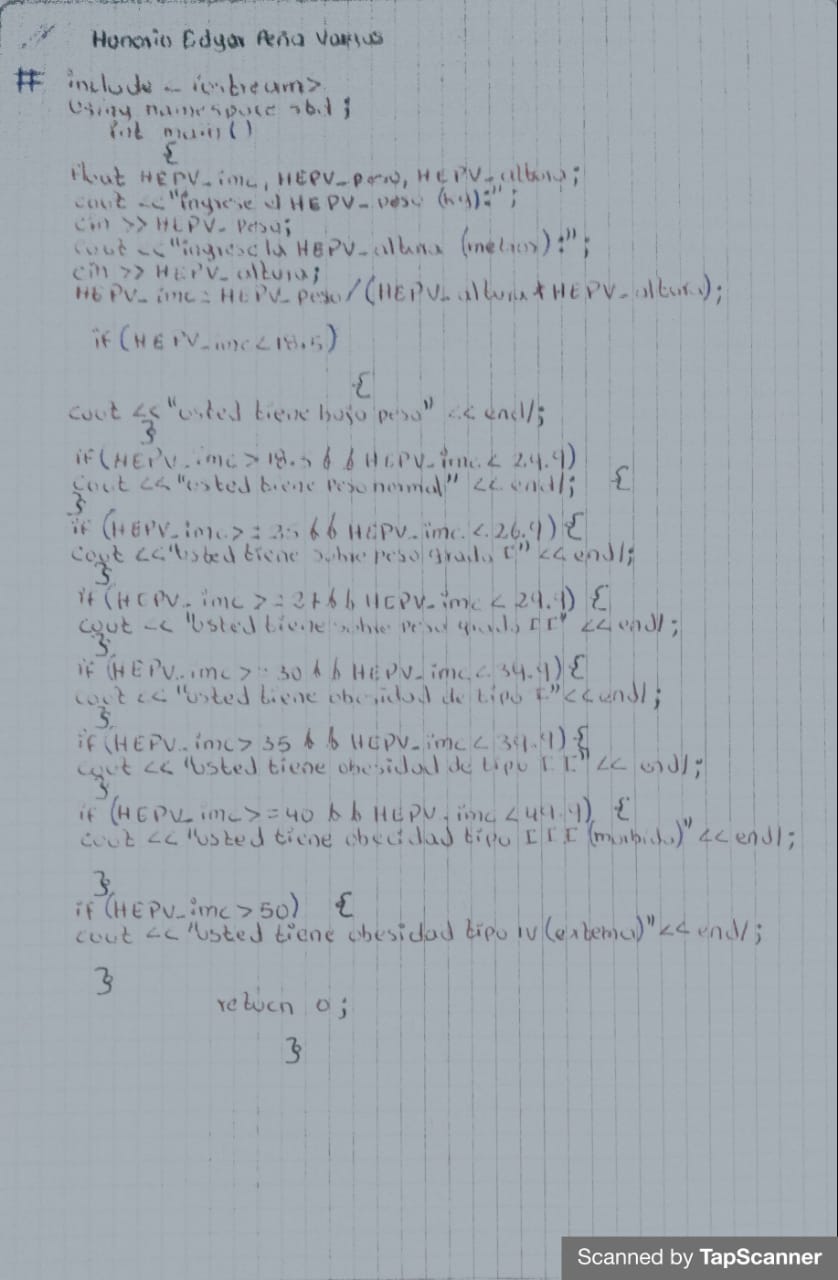 Honorio Edgar Peña Vargas
# include < iostream>
Using namespace std;
int main()
{
float HEPV_imc, HEPV_peso, HEPV_altura;
cout <<"ingrese el HEPV_peso (kg):";
cin >> HEPV_peso;
cout <<"ingrese la HEPV_altura (metros):";
cin >> HEPV_altura;
HEPV_imc = HEPV_peso/(HEPV_altura*HEPV_altura);
if (HEPV_imc<18.5)
{
cout << "usted tiene bajo peso" << endl;
}
if(HEPV_imc > 18.5 && HEPV_imc < 24.9)
cout << "usted tiene peso normal" << endl; {
}
if (HEPV_imc>= 25 && HEPV_imc < 26.9) {
cout <<"Usted tiene sobre peso grado I" << endl;
}
if (HEPV_imc >= 27 && HEPV_imc < 29.9) {
cout << "Usted tiene sobre peso grado II" << endl;
}
if (HEPV_imc >= 30 && HEPV_imc < 34.9) {
cout << "Usted tiene obesidad de tipo I"<< endl;
}
if (HEPV_imc > 35 && HEPV_imc < 39.9) {
cout << "Usted tiene obesidad de tipo II" << endl;
}
if (HEPV_imc>=40 && HEPV_imc <49.9) {
cout << "Usted tiene obecidad tipo III (morbida)" << endl;
}
if (HEPV_imc > 50) {
cout << "Usted tiene obesidad tipo IV (extema)" << endl;
}
return 0;
}
Scanned by TapScanner